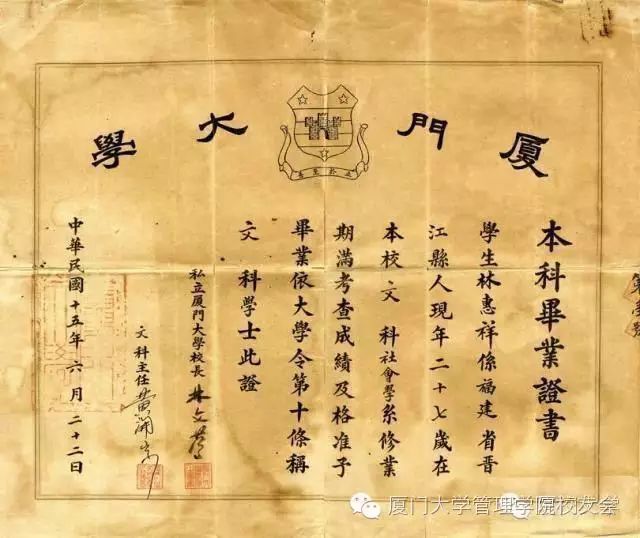 厦門大學
本科畢業證書
學生林惠祥係福建省晉
江縣人現年二十七歲在
本校文科社會學系修業
期滿考查成績及格准予
畢業依大學令第十條稱
文科學士此證
私立厦門大學校長 林文慶
文科主任
中華民國十五年六月二十二日
厦门大学管理学院校友会